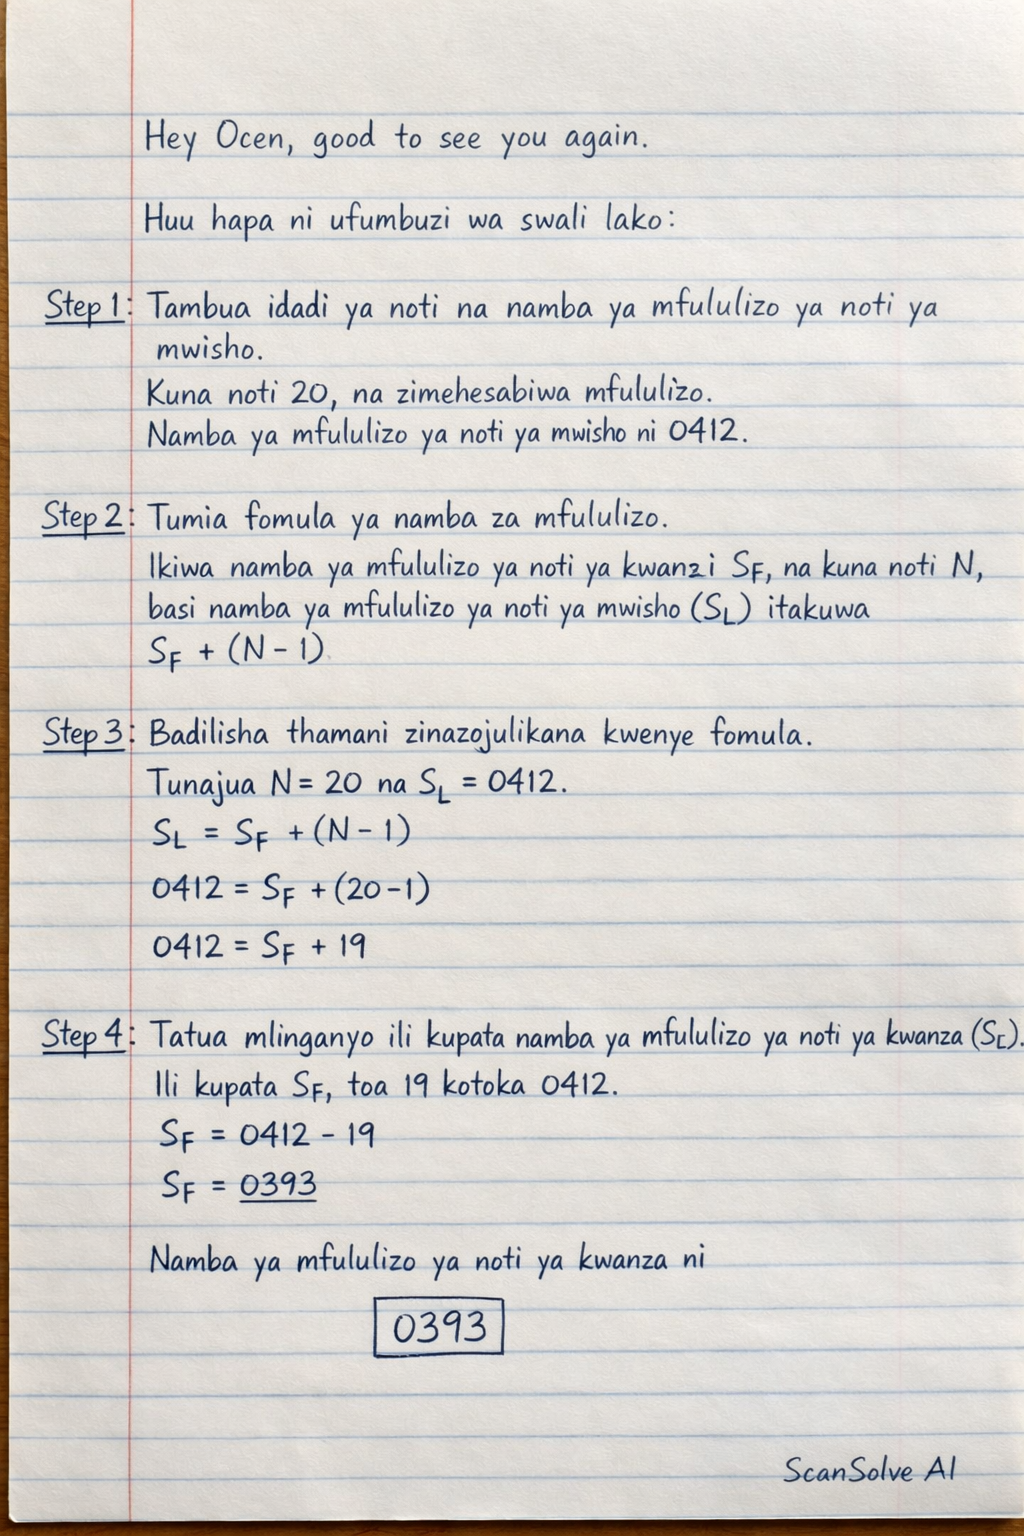 Hey Ocen, good to see you again.
Huu hapa ni ufumbuzi wa swali lako:
Step 1: Tambua idadi ya noti na namba ya mfululizo ya noti ya
mwisho.
Kuna noti 20, na zimehesabiwa mfululizo.
Namba ya mfululizo ya noti ya mwisho ni 0412.
Step 2: Tumia fomula ya namba za mfululizo.
Ikiwa namba ya mfululizo ya noti ya kwanzi S_F, na kuna noti N,
basi namba ya mfululizo ya noti ya mwisho (S_L) itakuwa
S_F + (N - 1)
Step 3: Badilisha thamani zinazojulikana kwenye fomula.
Tunajua N = 20 na S_L = 0412.
S_L = S_F + (N - 1)
0412 = S_F + (20 - 1)
0412 = S_F + 19
Step 4: Tatua mlinganyo ili kupata namba ya mfululizo ya noti ya kwanza (S_E).
Ili kupata S_F, toa 19 kotoka 0412.
S_F = 0412 - 19
S_F = 0393
Namba ya mfululizo ya noti ya kwanza ni
0393
ScanSolve AI